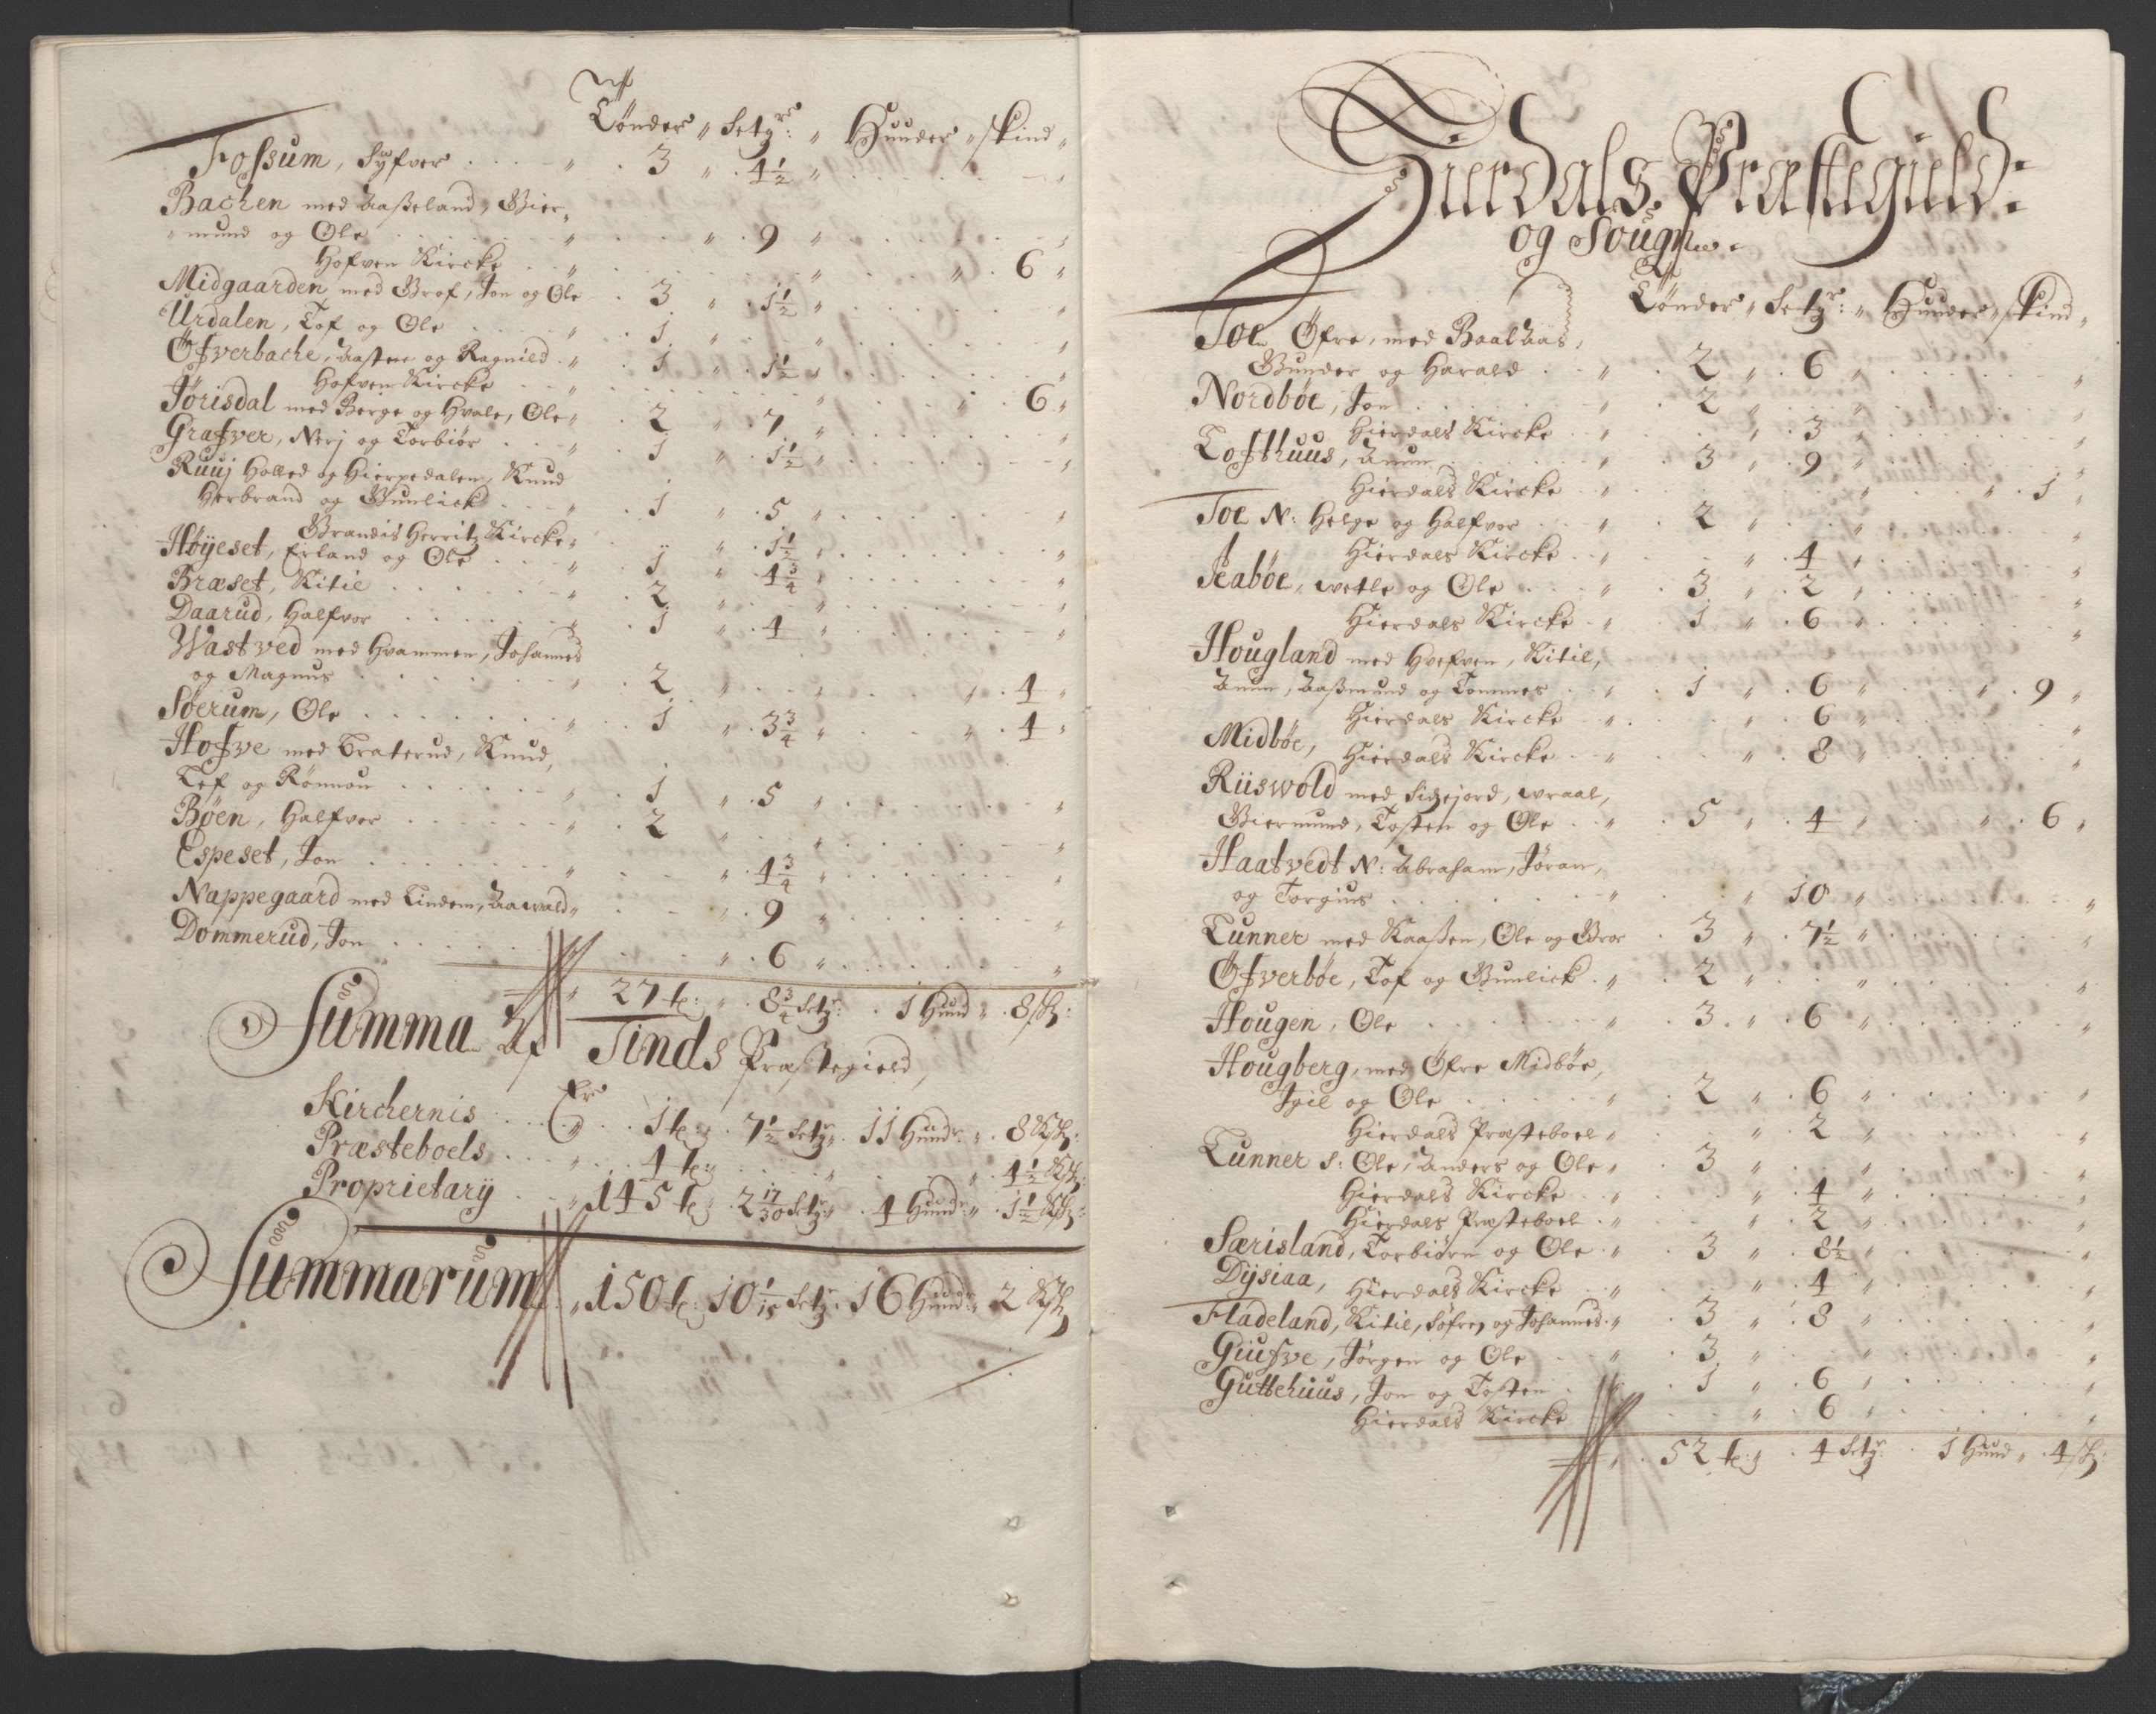 Tønder " Setgr: " Huuder " skind "
Fossum, Syfver . . . " . 3 " . 4½ "
Bachen med Aasseland, Gier-
mund og Ole . . . " . . " . 9 "
Hofven Kircke . . " . . . " . 6 "
Midgaarden med Grof, Jon og Ole . 3 " . 1½ "
Urdalen, Tof og Ole . . . " . 1. "
Øfverbache, Aasten og Ragnild . " . 1 " . 1½ "
Hofven Kircke . . " . . . " . 6 "
Jørisdal med Berge og Hvale, Ole " . 2 " . 7 "
Grafver, Nerj og Torbiør . . " . 1 " . 1½ "
Ruuj Holled og Hierpedalen, Knud
Herbrand og Gunlick . . . " . 1 " . 5 "
Brandis Herritz Kircke " . . " . 1½ "
Høyeset, Erland og Ole . . " . 1 " . 4¾ "
Bræset, Kitil . . . " . 2. "
Daarud, Halfvor . . . " . 1 " . 4 "
Wastved med Hvammen, Johannes
og Magnus . . . " . 2. " . . " . 4 "
Søerum, Ole . . . " . 1 " . 3¾ " . . " . 4 "
Hofve med Traterud, Knud,
Tef og Rønnou . . . " . 1 " . 5 "
Bøen, Halfvor . . . " . 2 "
Espeset, Jon . . . " . . " . 4¾ "
Nappegaard med Lindem, Aawald " . . " . 9 "
Dommerud, Jon . . . . . " . 6 "
" 27 te: " . 8¾ Setgr: . 1 Hund " . 8 sk:
Summa Af Tinds Præstegield,
Er
Kirchernis . . . " . . 1 te: . 7½ Setgr . 11 Hundr: " . 8 Sk:
Præsteboels . . . " . . 4 te: . . . " . 4½ Sk:
Proprietarÿ . . " 145 te: . 2 17/30 Setgr " . 4 Hundr: " . 1½ Sk:
Summarum " 150 te: 10 1/15 Setgr . 16 Hundr: " 2 Sk
Hierdals Præstegield:
og Sougn.
Tønder " Setgr: " Huuder " skind "
Toe Øfre, med Baalaas,
Gunder og Harald . . " . 2 " . 6 "
Nordbøe, Jon . . . " . 2 "
Hierdals Kircke . . " . . " . 3 "
Lofthuus, Anun . . . " . 3 " . 9 "
Hierdals Kircke . . " . . . " . 1 "
Toe N: Helge og Halfvor . . " . 2 "
Hierdals Kircke . . " . . " . 4 "
Jeabøe, wetle og Ole . . . " . 3. " . 2 "
Hierdals Kircke . " . 1 " . 6 "
Hougland med Hvefven, Kitil,
Anun, Aassmund og Tommes . . " . 1 " . 6 " . . " . 9 "
Hierdals Kircke . " . . " . 6 "
Midbøe, Hierdals Kircke . . " . . " . 8 "
Riiswold med Sidzejord, wraal,
Giermund, Tosten og Ole . . " . 5 " . 4 " . . " . 6 "
Haatvedt N: Abraham, Jøran,
og Torgius . . . " . . " 10 "
Tunner med Kaassen, Ole og Bror . 3 " . 7½ "
Øfverbøe, Tof og Gunlick . " . 2 "
Hougen, Ole . . . " . 3. " . 6 "
Hougberg, med Øfre Midbøe,
Igil og Ole . . . " . 2 " . 6 "
Hierdals Præsteboel " . . " . 2 "
Tunner S: Ole, Anders og Ole " . 3 "
Hierdals Kircke . . " . . " . 4 "
Hierdals Præsteboel . " . . " . 2 "
Særisland, Torbiørn og Ole . " . 3 " . 8½ "
Dÿsiaa, Hierdals Kircke . . " . . " . 4 "
Fladeland, Kitil, Søfren og Johannes . " . 3 " . 8 "
Giufve, Jørgen og Ole . . . " . 3. "
Guttehuus, Jon og Tosten . . . 1 " . 6 "
Hierdals Kircke . . . " . 6 "
" . 52 te: . 4 Setgr: . 1 Hund " . 4 sk: